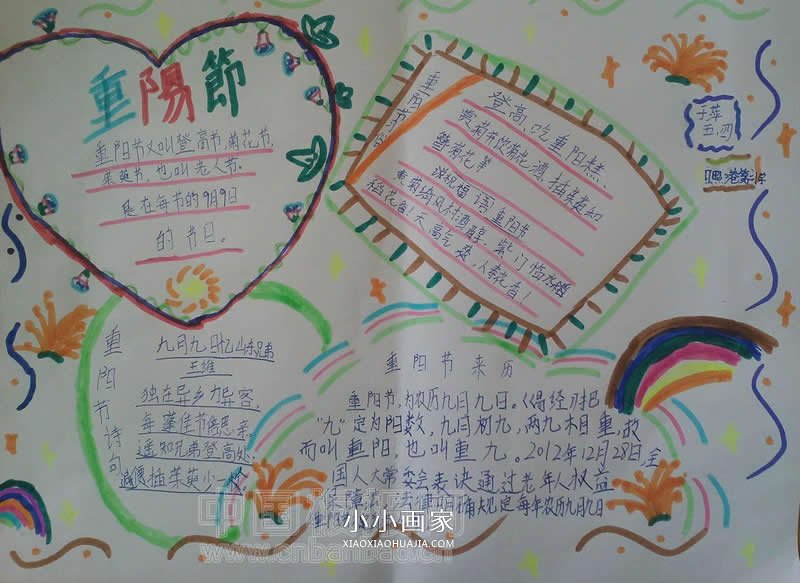 重陽節
重阳节又叫登高节,菊花节,
茱萸节,也叫老人节。
是在每节的9月9日
的节日。
登高、吃重阳糕、
赏菊节饮菊花酒、插茱萸和
簪菊花等
送祝福语重阳节
五.四
重阳节诗句
九月九日忆山东兄弟
王维
独在异乡为异客,
每逢佳节倍思亲,
遥知兄弟登高处,
遍插茱萸少一
重阳节来历
重阳节,为农历九月九日。《易经》把
"九"定为阳数,九月初九,两九相重,故
而叫重阳,也叫重九。2012年12月28日,全
国人大常委会表决通过老年人权益
明确规定每年农历九月九日
小小画家
XIAOXIAOHUAJIA.COM
www.cnbanbao.cn